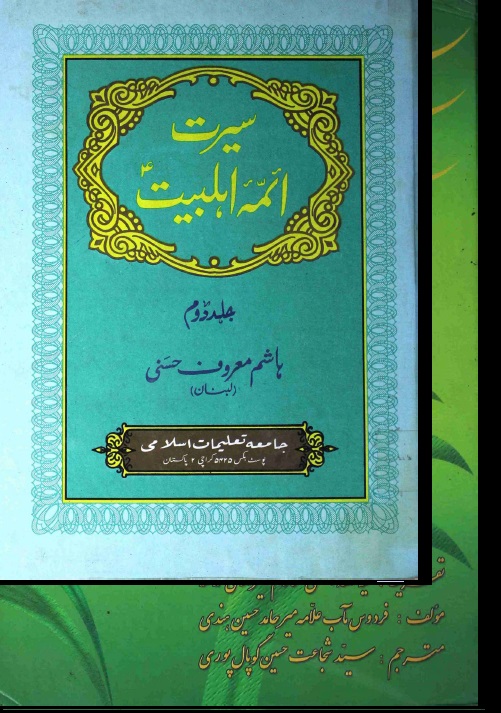 سیرت
ائمّۂ اہلبیتؑ
جلد دوم
ہاشم معروف حسَنی
(لبنان)
جامعہ تعلیمات اسلامی
پوسٹ بکس ۵۴۲۵ کراچی ۲ پاکستان
مؤلف : فردوس مآب علاّمہ میر حامد حسین ہندی
مترجم : سیّد شجاعت حسین گوپال پوری